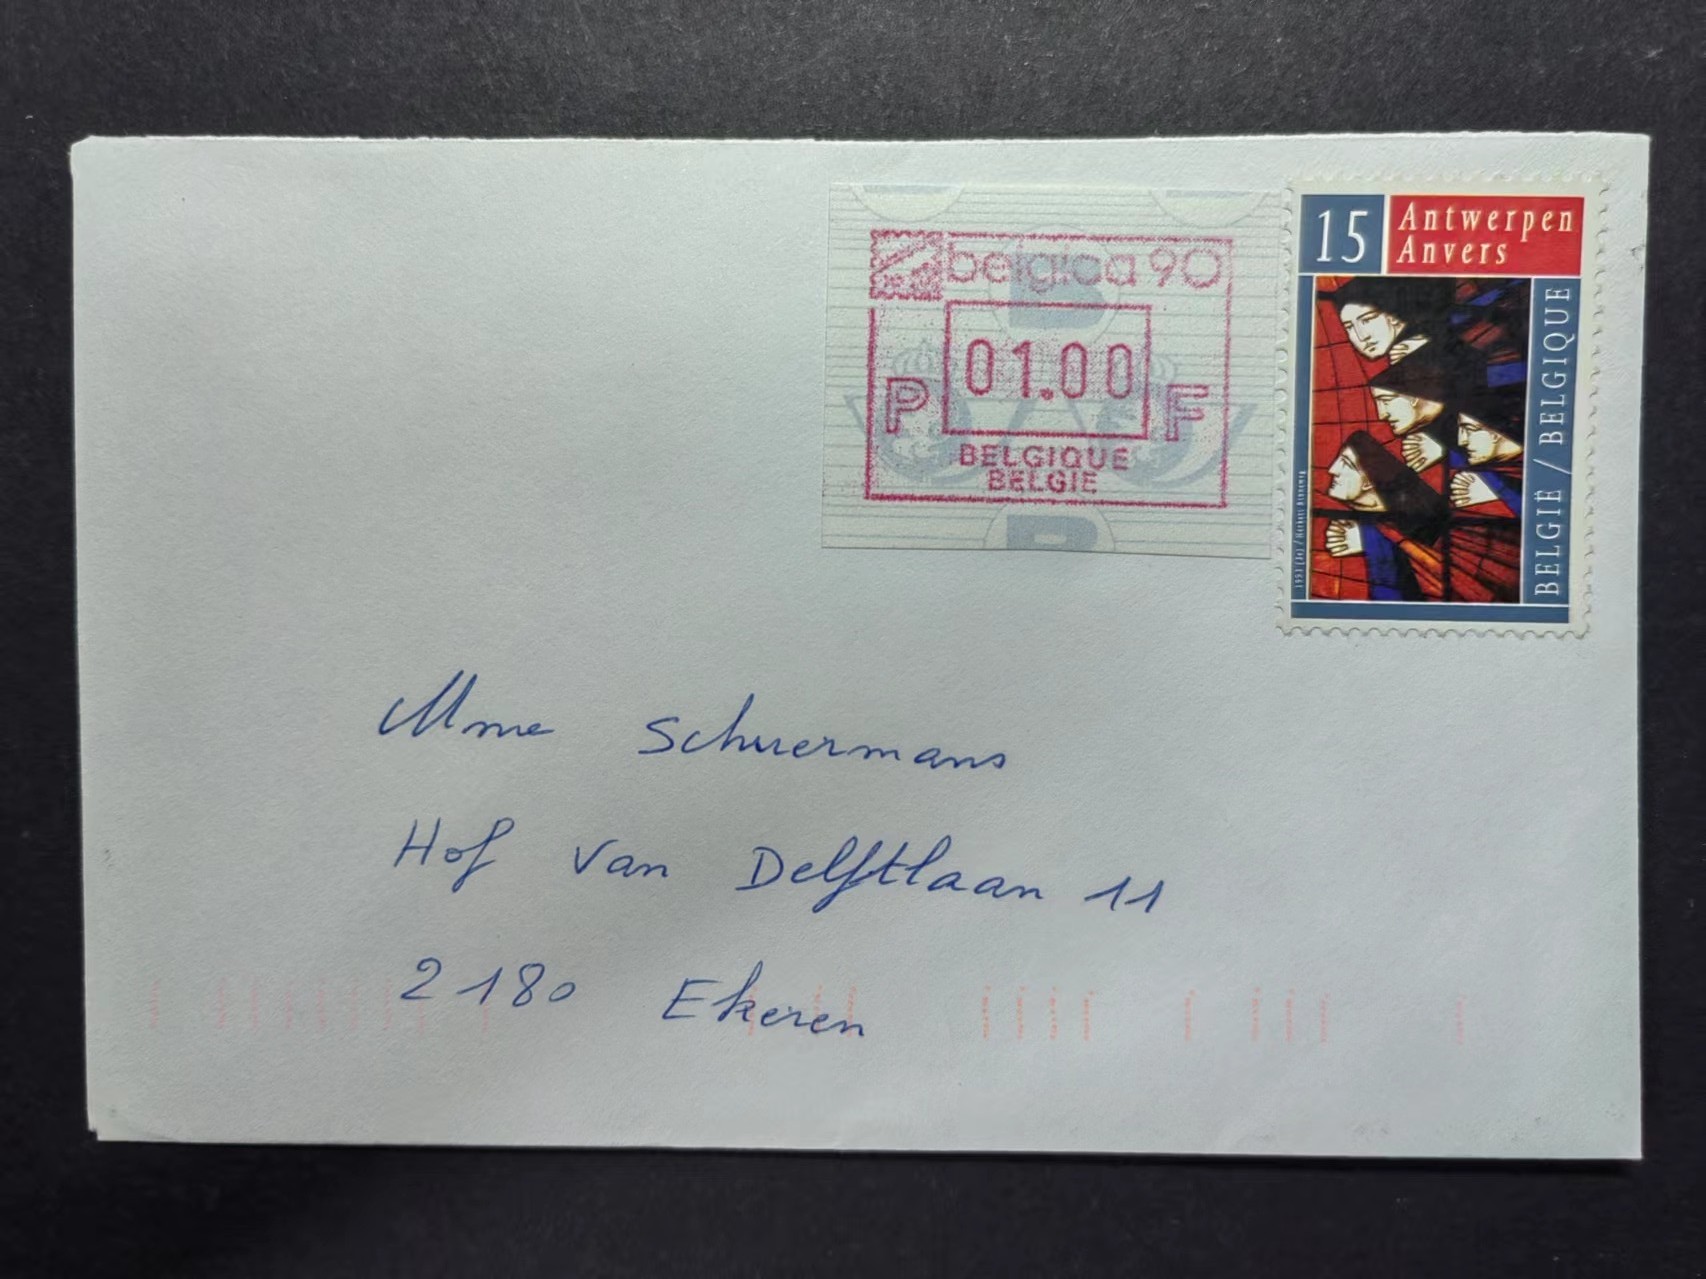 belgica 90
01.00
P F
BELGIQUE
BELGIE
B
15
Antwerpen
Anvers
BELGIË / BELGIQUE
Mme Schuermans
Hof Van Delftlaan 11
2180 Ekeren